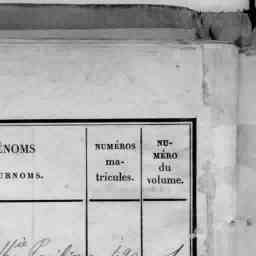 ÉNOMS
URNOMS.
NUMÉROS
ma-
tricules.
NU-
MÉRO
du
volume.